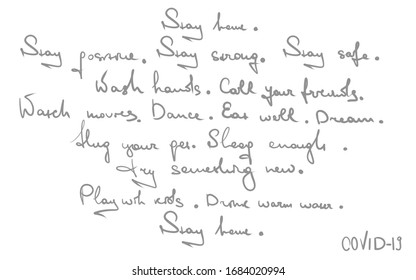 Stay home.
Stay positive. Stay strong. Stay safe.
Wash hands. Call your friends.
Watch movies. Dance. Eat well. Dream.
Hug your pet. Sleep enough.
Try something new.
Play with kids. Drink warm water.
Stay home.
COVID-19
shutterstock.com · 1684020994